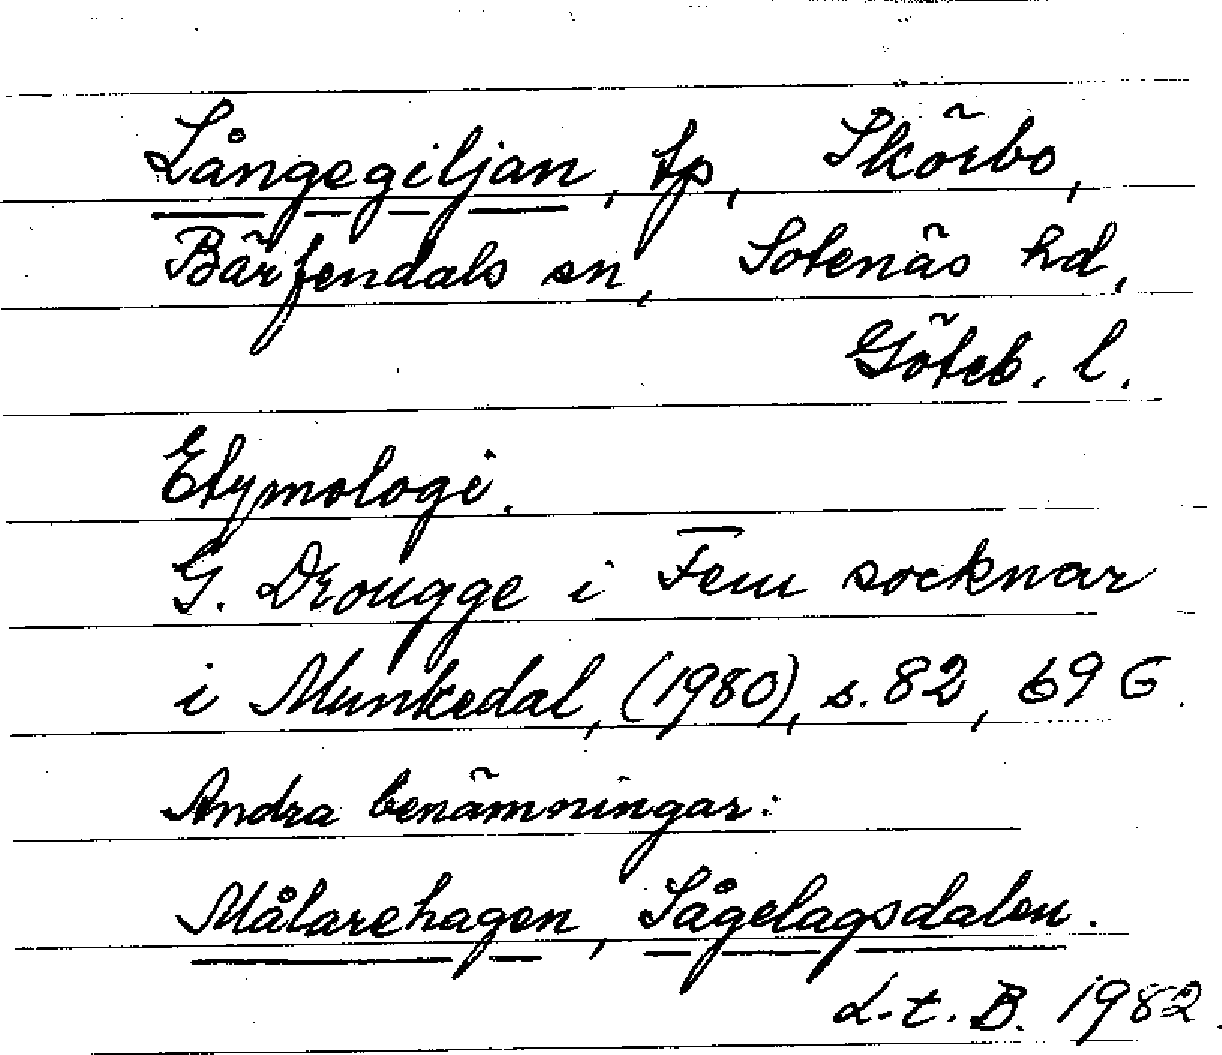 Långegiljan, tp, Skörbo,
Bärfendals sn, Sotenäs hd,
Göteb. l.
Etymologi.
G. Drougge i Fem socknar
i Munkedal, (1980), s. 82, 69 G.
Andra benämningar:
Målarehagen, Sågelagsdalen.
L.t.B. 1982.